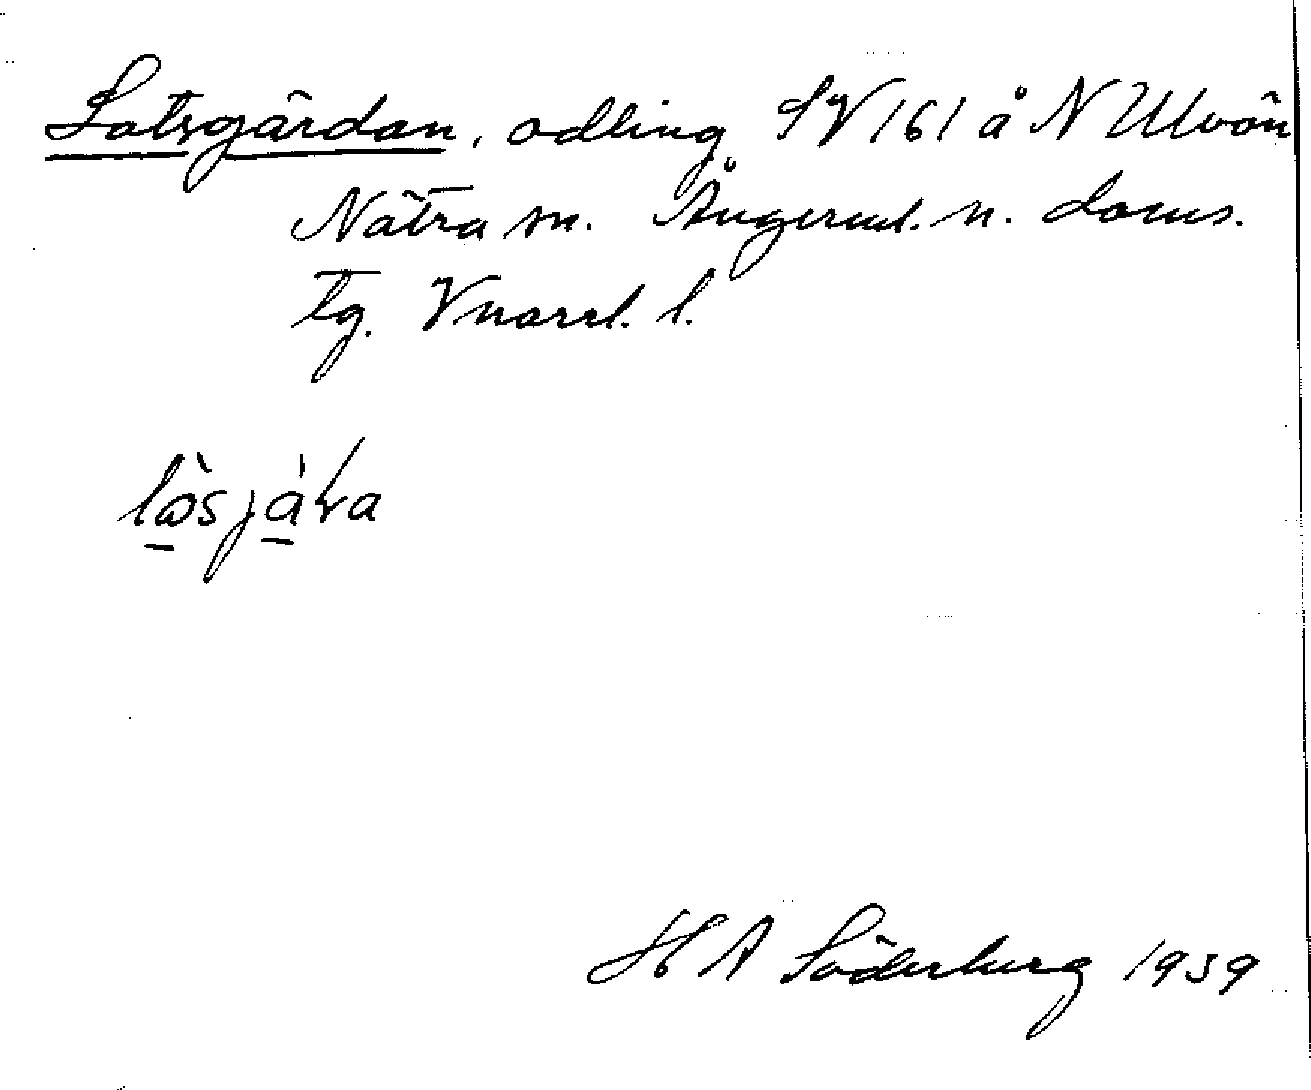 Lotsgärdan, odling SV 161 å N Ulvön
Nätra sn. Ångerml. n. doms.
tg. Vnorrl. l.
låsjáɽa
H A Söderberg 1939